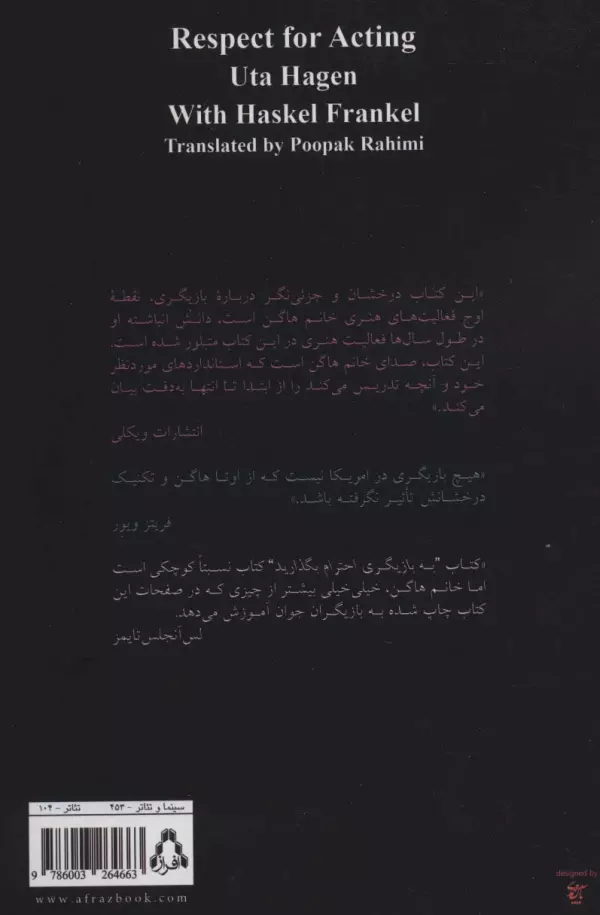 Respect for Acting
Uta Hagen
With Haskel Frankel
Translated by Poopak Rahimi
«این کتاب درخشان و جزئی‌نگر دربارهٔ بازیگری، نقطهٔ
اوج فعالیت‌های هنری خانم هاگن است. دانش انباشته او
در طول سال‌ها فعالیت هنری در این کتاب متبلور شده است.
این کتاب، صدای خانم هاگن است که استانداردهای موردنظر
خود و آنچه تدریس می‌کند را از ابتدا تا انتها به‌دقت بیان
می‌کند.»
انتشارات ویکلی
«هیچ بازیگری در امریکا نیست که از اوتا هاگن و تکنیک
درخشانش تأثیر نگرفته باشد.»
فریتز ویور
«کتاب "به بازیگری احترام بگذارید" کتاب نسبتاً کوچکی است
اما خانم هاگن، خیلی‌خیلی بیشتر از چیزی که در صفحات این
کتاب چاپ شده به بازیگران جوان آموزش می‌دهد.
لس‌آنجلس‌تایمز
سینما و تئاتر - ۲۵۳ تئاتر - ۱۰۴
افراز
9 786003 264663
www.afrazbook.com
designed by